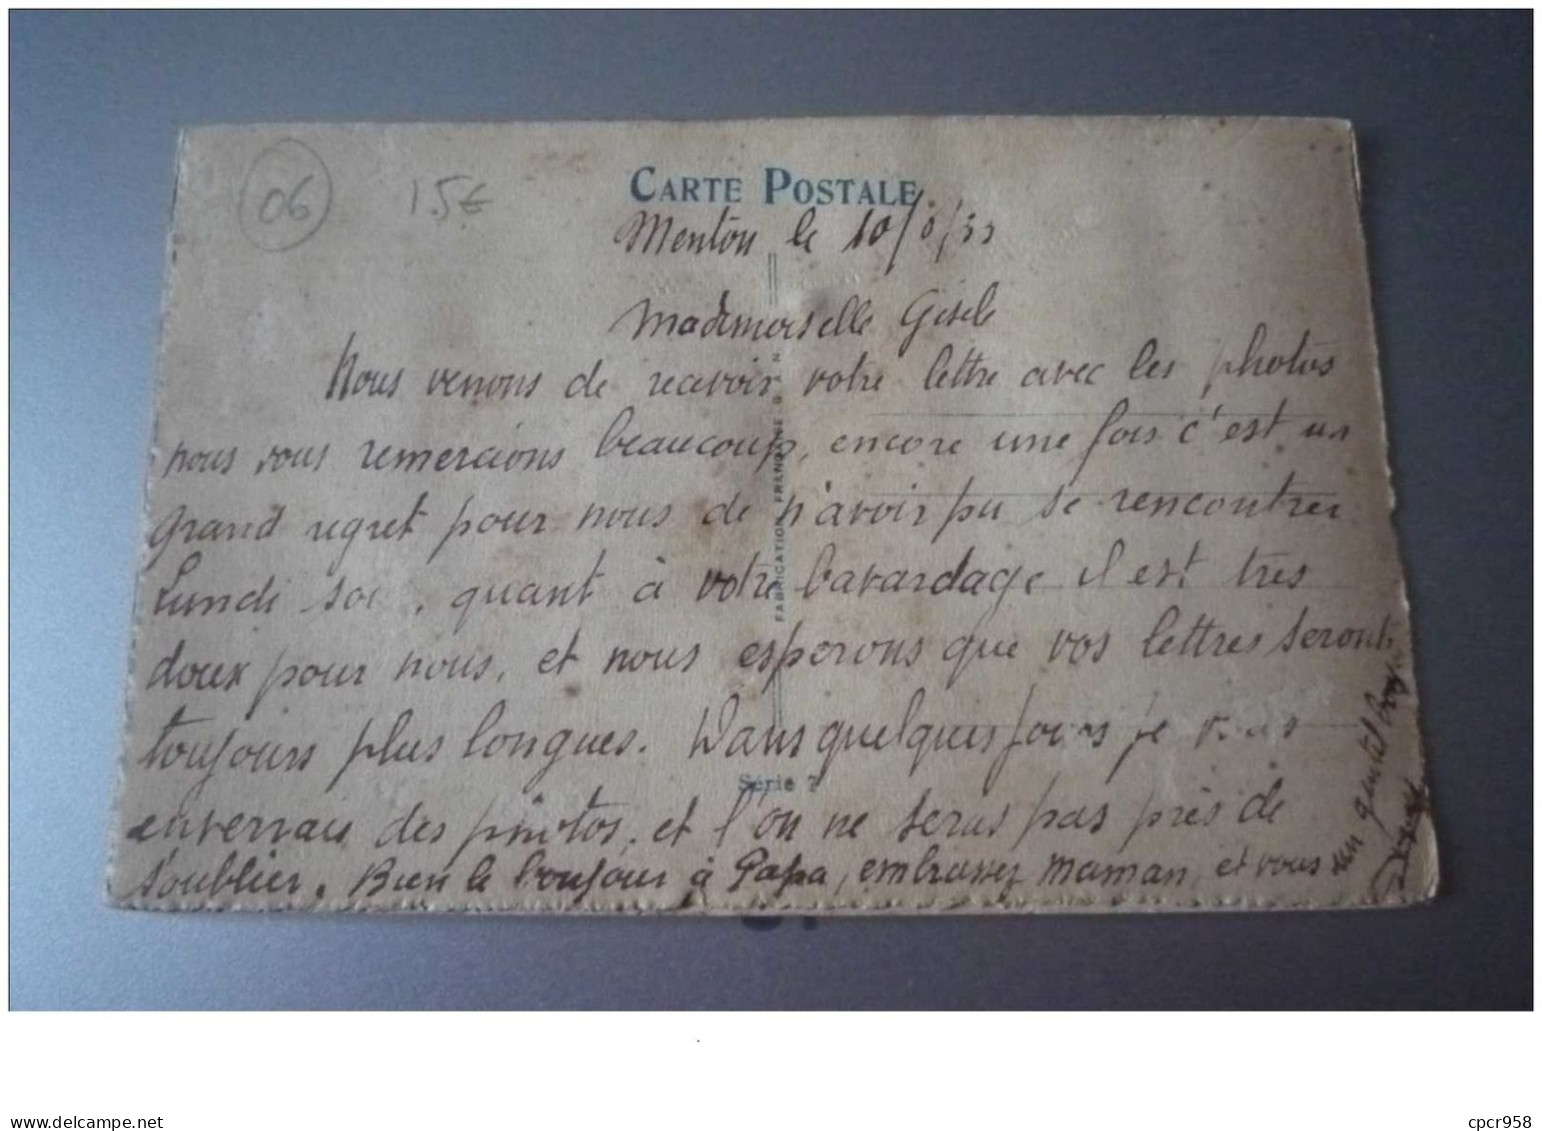 06 15€
CARTE POSTALE
Menton le 10/8/33
Mademoiselle Gisele
Nous venons de recevoir votre lettre avec les photos
nous vous remercions beaucoup, encore une fois c'est un
grand regret pour nous de n'avoir pu se rencontrer
Lundi soir, quant à votre bavardage il est tres
doux pour nous, et nous esperons que vos lettres seront
toujours plus longues. Dans quelques jours je vous
enverrais des photos, et l'on ne seras pas près de
s'oublier. Bien le bonjour à Papa, embrassez Maman, et vous
un gentil
FABRICATION FRANÇAISE
Série 7
delcampe.net
cpcr958